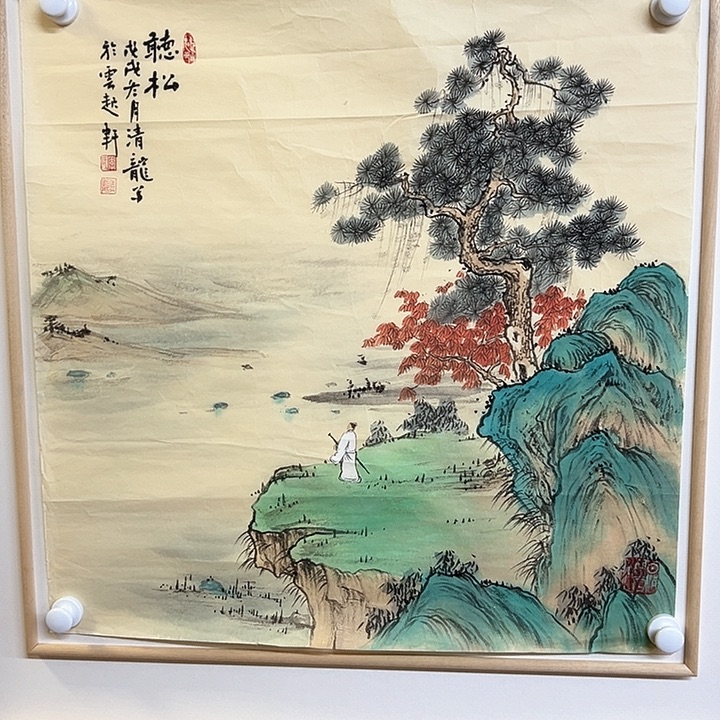 聽松
戊戌冬月清龍写
於雲起軒